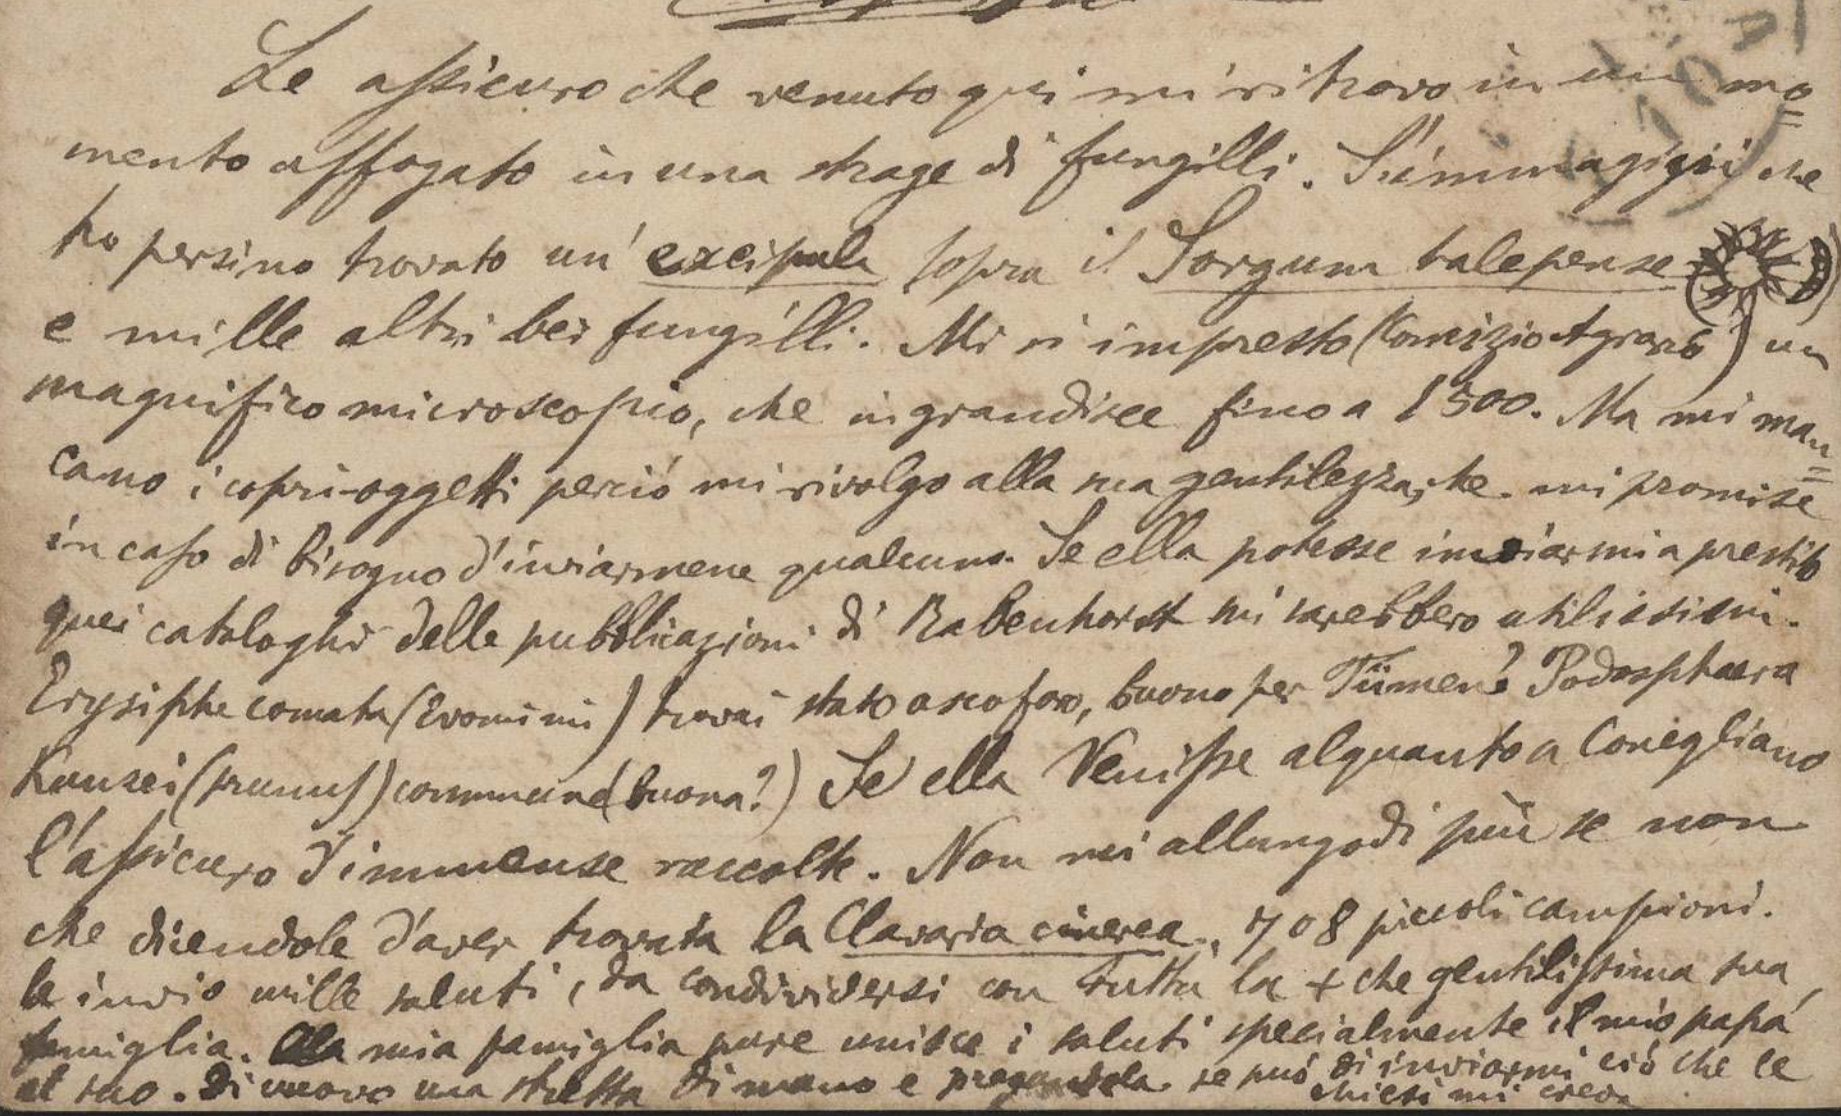 Le assicuro che venuto qui mi ritrovo in un mo=
mento affogato in una strage di fungilli. S'immagigni che
ho persino trovato un' excipula sopra il Sorgum halepense
e mille altri bei fungilli. Mi si impresto (Comizio Agrario) un
magnifico microscopio, che ingrandisce fino a 1500. Ma mi man=
cano i copri-oggetti perciò mi rivolgo alla sua gentilezza, che mi promise
in caso di bisogno d'inviarmene qualcuno. Se ella potesse inviarmi a prestito
quei cataloghi delle pubblicazioni di Rabenhorst mi sarebbero utilissimi.
Erysiphe comata (Evonimi) trovai stato ascoforo, buono per Tümen? Podosphaera
Kunzei (prunus) commune (buona?) Se ella Venisse alquanto a Conegliano
l'assicuro d'immense raccolte. Non mi allungo di più se non
che dicendole d'aver trovata la Clavaria cinerea, 7 o 8 piccoli campioni.
le invio mille saluti, da condividersi con tutta la + che gentilissima sua
famiglia. la mia famiglia pure unisce i saluti specialmente il mio papà
al suo. Di nuovo una stretta di mano e pregandola se può di inviarmi ciò che le
chiesi mi creda